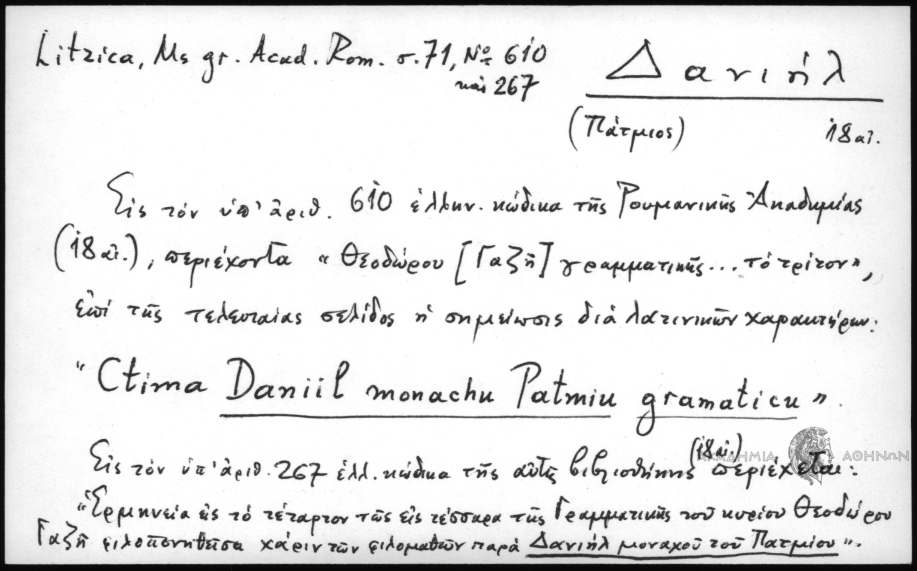 Litzica, Ms gr. Acad. Rom. σ. 71, Nº 610
καὶ 267
Δανιήλ
(Πάτμιος) 18 αἰ.
Εἰς τόν ὑπ' ἀριθ. 610 ἑλλην. κώδικα τῆς Ρουμανικῆς Ἀκαδημίας
(18 αἰ.), περιέχοντα «Θεοδώρου [Γαζῆ] γραμματικῆς... τό τρίτον»,
ἐπί τῆς τελευταίας σελίδος ἡ σημείωσις διά λατινικῶν χαρακτήρων:
"Ctima Daniil monachu Patmiu gramaticu".
Εἰς τόν ὑπ' ἀριθ. 267 ἑλλ. κώδικα τῆς αὐτῆς βιβλιοθήκης (18 αἰ.) περιέχεται:
"Ἑρμηνεία εἰς τό τέταρτον τῶν εἰς τέσσαρα τῆς Γραμματικῆς τοῦ κυρίου Θεοδώρου
Γαζῆ φιλοπονηθεῖσα χάριν τῶν φιλομαθῶν παρά Δανιήλ μοναχοῦ τοῦ Πατμίου".
ΑΚΑΔΗΜΙΑ ΑΘΗΝΩΝ